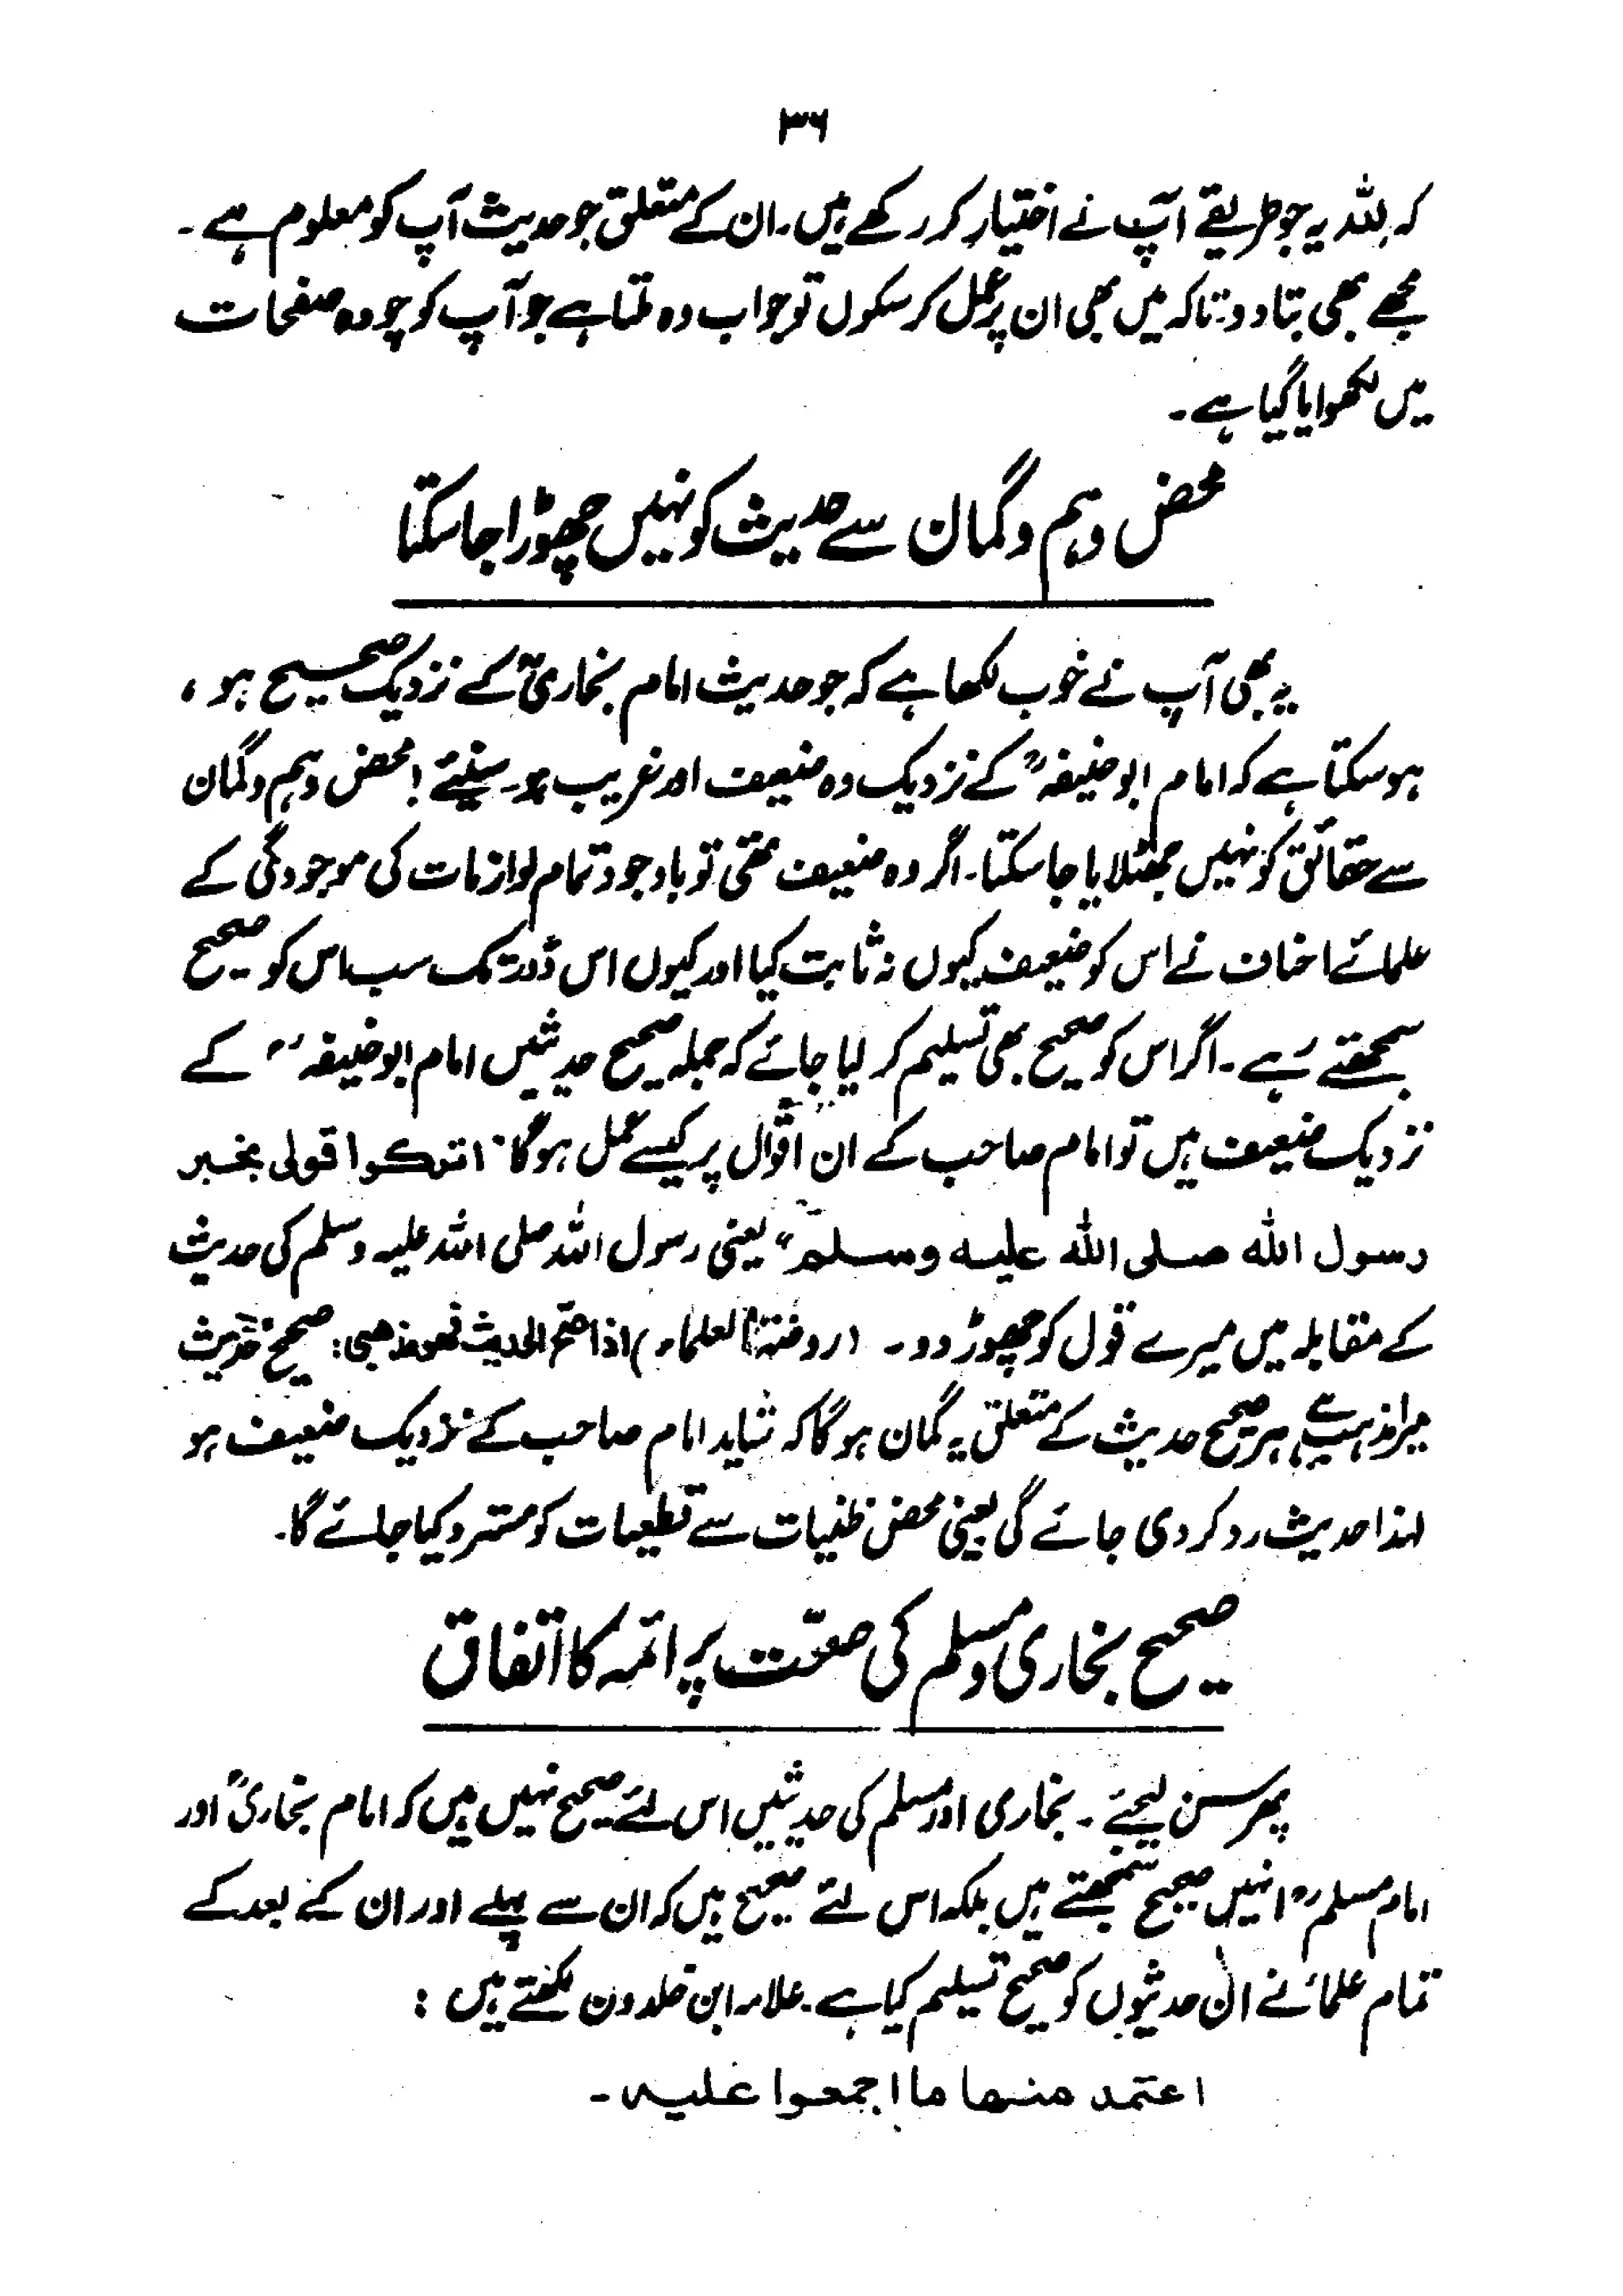 ۳۶
کہ للہ یہ جو طریقے آپ نے اختیار کر رکھے ہیں۔ ان کے متعلق جو حدیث آپ کو معلوم ہے۔
مجھے بھی بتا دو تاکہ میں بھی ان پر عمل کر سکوں تو جواب وہ ملتا ہے جو آپ کو چودہ صفحات
میں لکھوایا گیا ہے۔
محض وہم و گمان سے حدیث کو نہیں چھوڑا جا سکتا
یہ بھی آپ نے خوب لکھا ہے کہ جو حدیث امام بخاریؒ کے نزدیک صحیح ہو،
ہو سکتا ہے کہ امام ابو حنیفہؒ کے نزدیک وہ ضعیف اور غریب ہو۔ سنیئے! محض وہم و گمان
سے حقائق کو نہیں جھٹلایا جا سکتا۔ اگر وہ ضعیف تھی تو باوجود تمام لوازمات کی موجودگی کے
علمائے احناف نے اس کو ضعیف کیوں نہ ثابت کیا اور کیوں اس دور تک سب اس کو صحیح
سمجھتے رہے۔ اگر اس کو صحیح بھی تسلیم کر لیا جائے کہ جملہ صحیح حدیثیں امام ابو حنیفہؒ کے
نزدیک ضعیف ہیں تو امام صاحب کے ان اقوال پر کیسے عمل ہوگا "اترکوا قولی بخبر
رسول اللہ صلی اللہ علیہ وسلم" یعنی رسول اللہ صلی اللہ علیہ وسلم کی حدیث
کے مقابلہ میں میرے قول کو چھوڑ دو۔ (روضۃ العلماء) اذا صح الحدیث فھو مذھبی: صحیح حدیث
میرا مذہب ہے، ہر صحیح حدیث کے متعلق یہ گمان ہو گا کہ شاید امام صاحب کے نزدیک ضعیف ہو
لہذا حدیث رد کر دی جائے گی یعنی محض ظنیات سے قطعیات کو مسترد کیا جائے گا۔
صحیح بخاری و مسلم کی صحّت پر ائمہ کا اتفاق
پھر سن لیجئے۔ بخاری اور مسلم کی حدیثیں اس لئے صحیح نہیں ہیں کہ امام بخاریؒ اور
امام مسلمؒ انہیں صحیح سمجھتے ہیں بلکہ اس لئے صحیح ہیں کہ ان سے پہلے اور ان کے بعد کے
تمام علماء نے ان حدیثوں کو صحیح تسلیم کیا ہے۔ علامہ ابن خلدون لکھتے ہیں:
اعتمد منها ما اجمعوا علیه۔